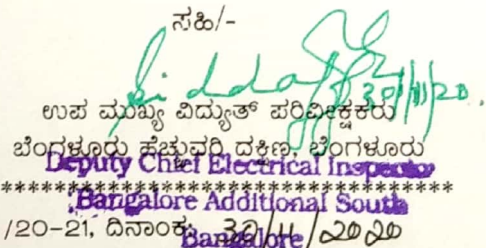 ಸಹಿ/-
30/11/20.
ಉಪ ಮುಖ್ಯ ವಿದ್ಯುತ್ ಪರಿವೀಕ್ಷಕರು
ಬೆಂಗಳೂರು ಹೆಚ್ಚುವರಿ ದಕ್ಷಿಣ, ಬೆಂಗಳೂರು
Deputy Chief Electrical Inspector
****************************************
Bangalore Additional South
/20-21, ದಿನಾಂಕ: 30/11/2020
Bangalore